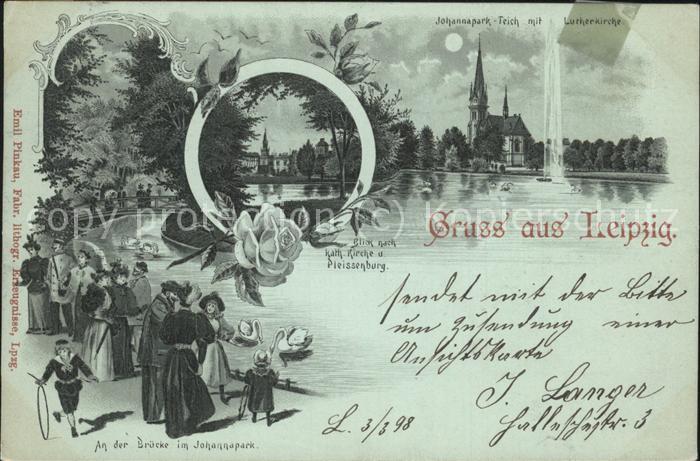 Johannapark-Teich mit Lutherkirche
Gruss aus Leipzig.
Blick nach
kath. Kirche u.
Pleissenburg.
Emil Pinkau, Fabr. lithogr. Erzeugnisse, Lpzg.
sendet mit der Bitte
um Zusendung einer
Ansichtskarte
J. Langer
Halleschestr. 3
L. 3/3 98
An der Brücke im Johannapark.
copy protection © Copyright Kopierschutz